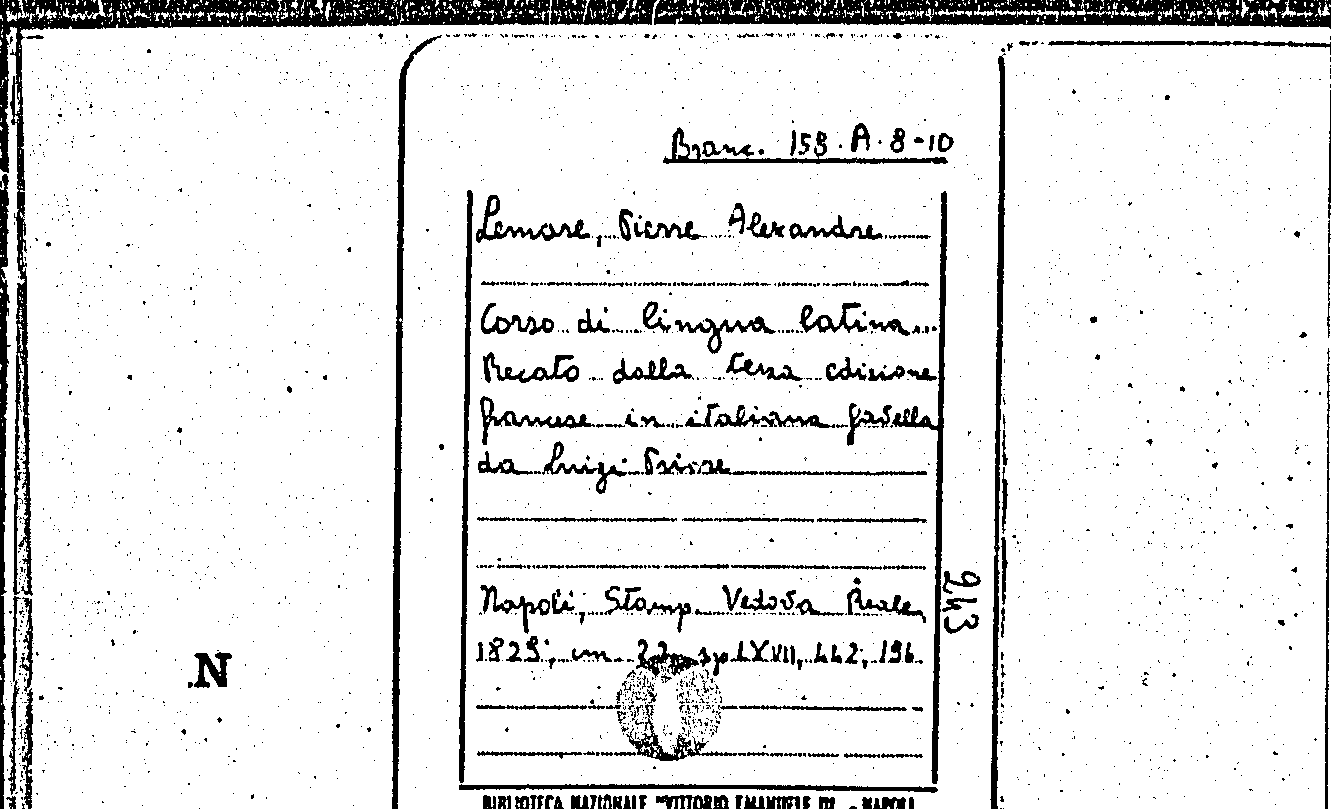 Branc. 158.A.8-10
Lemare, Pierre Alexandre
Corso di lingua latina...
Recato dalla terza edizione
francese in italiana favella
da Luigi
Napoli, Stamp. Vedova Reale,
1829; cm LXVII, 442, 196.
243
N
BIBLIOTECA NAZIONALE "VITTORIO EMANUELE III" - NAPOLI